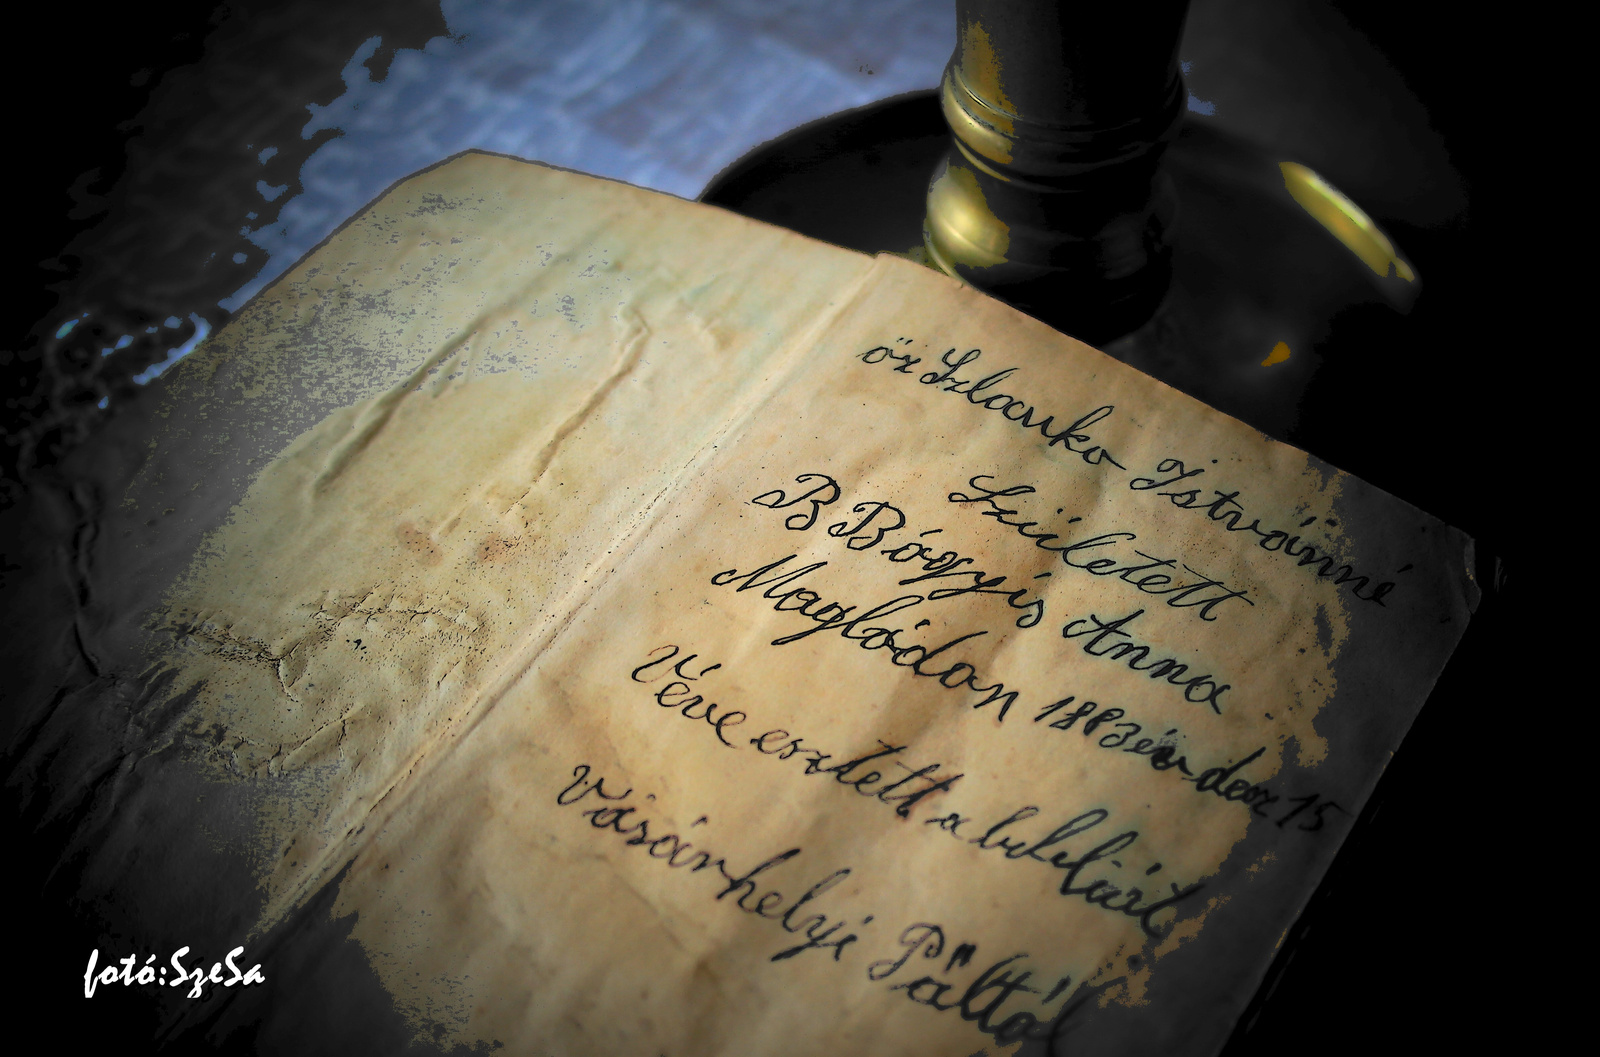 öz Szlovuko Istvánné
Született
B Bógyis Anna
Maglódon 1883 én decz 15
Véve eztett a bibliát
Vásárhelyi Páltól
fotó:SzeSa